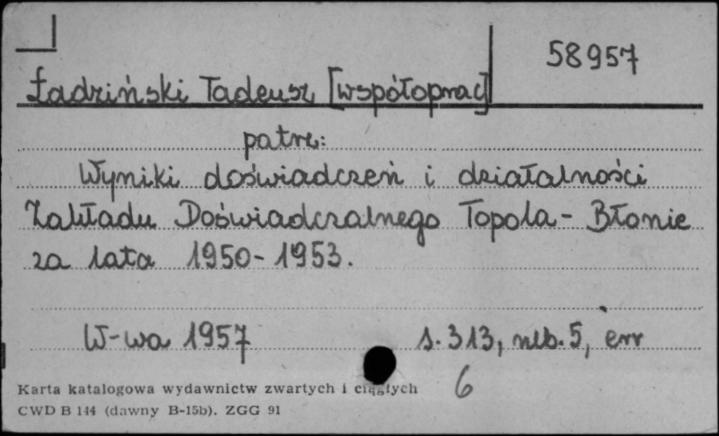 58957
Ładziński Tadeusz [współoprac]
patrz:
Wyniki doświadczeń i działalności
Zakładu Doświadczalnego Topola-Błonie
za lata 1950-1953.
W-wa 1957 s. 313, nlb. 5, err
6
Karta katalogowa wydawnictw zwartych i ciągłych
CWD B 144 (dawny B-15b). ZGG 91